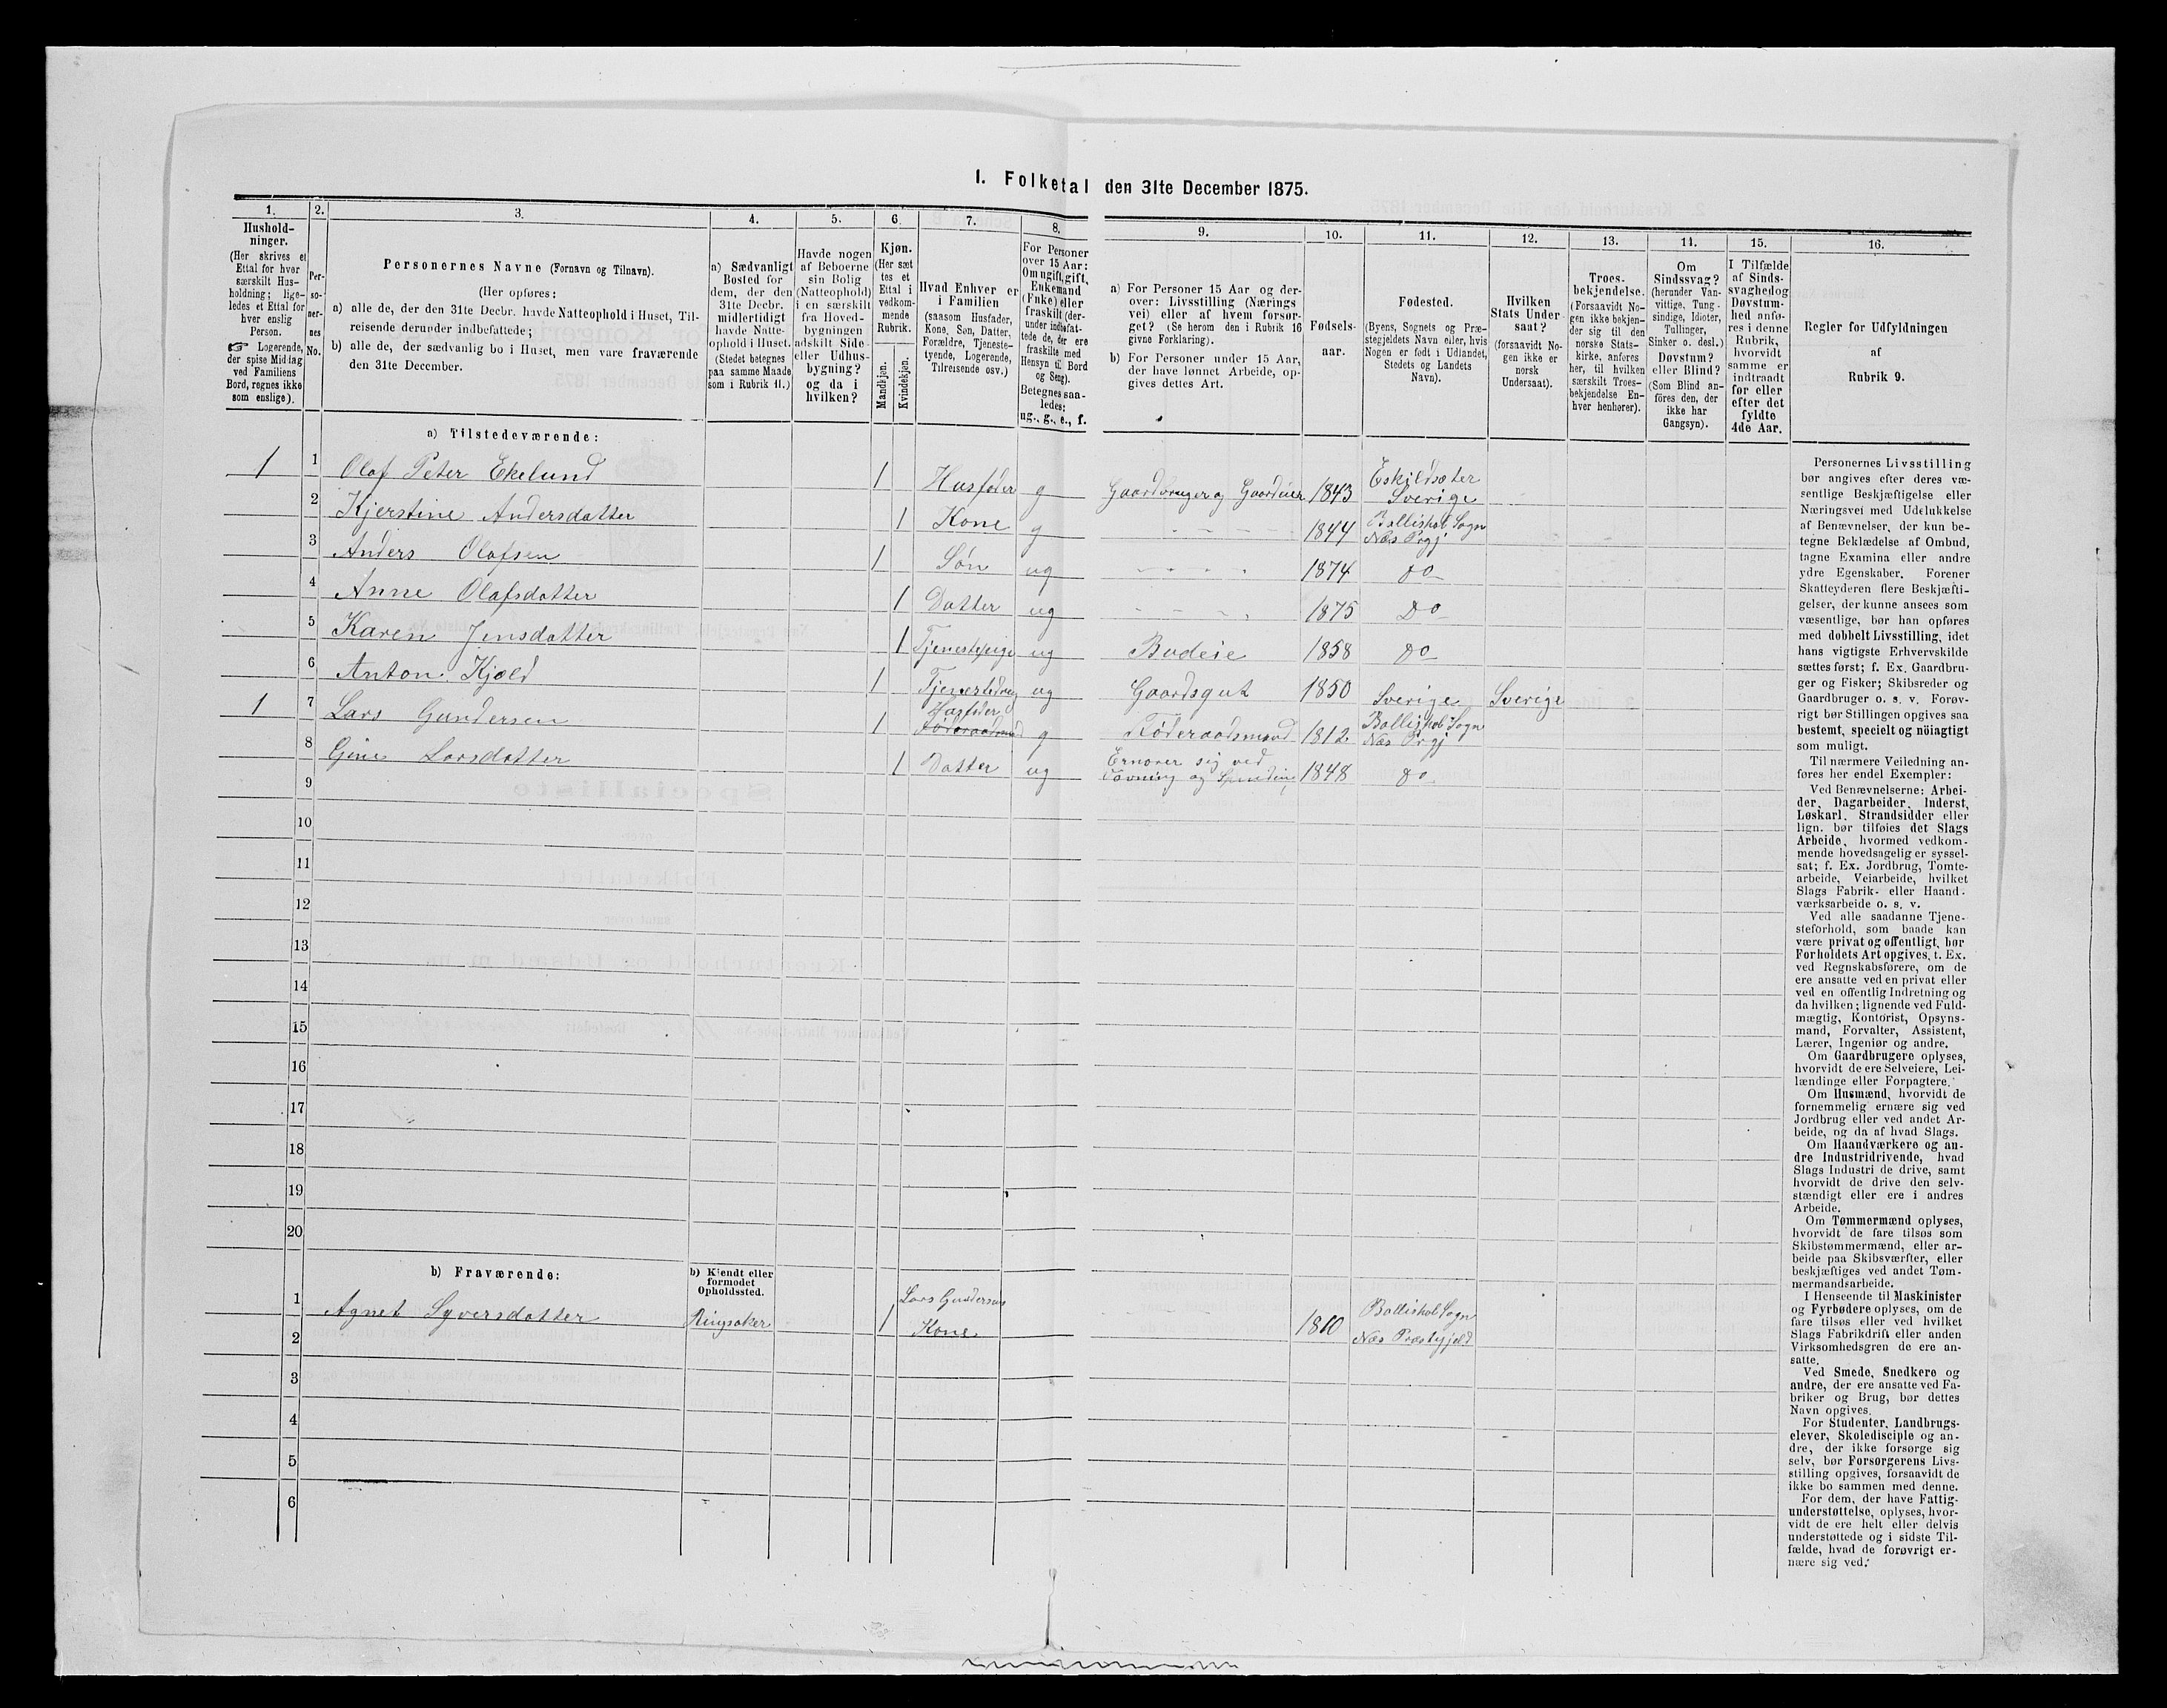 1. Folketal den 31te December 1875.
1. 2. 3. 4. 5. 6. 7. 8. 9. 10. 11. 12. 13. 14. 15. 16.
Hushold-
ninger.
(Her skrives et
Ettal for hver
særskilt Hus-
holdning; lige-
ledes et Ettal for
hver enslig
Person.
☞ Logerende,
der spise Middag
ved Familiens
Bord, regnes ikke
som enslige).
Per-
so-
ner-
nes
No.
Personernes Navne (Fornavn og Tilnavn).
(Her opføres:
a) alle de, der den 31te Decbr. havde Natteophold i Huset, Til-
reisende derunder indbefattede;
b) alle de, der sædvanlig bo i Huset, men vare fraværende
den 31te December.
a) Sædvanligt
Bosted for
dem, der den
31te Decbr.
midlertidigt
havde Natte-
ophold i Huset.
(Stedet betegnes
paa samme Maade
som i Rubrik 11.)
Havde nogen
af Beboerne
sin Bolig
(Natteophold)
i en særskilt
fra Hoved-
bygningen
adskilt Side-
eller Udhus-
bygning?
og da i
hvilken?
Kjøn.
(Her sæt
tes et
Ettal i
vedkom-
mende
Rubrik.
Mandkjøn.
Kvindekjøn.
Hvad Enhver er
i Familien
(saasom Husfader,
Kone, Søn, Datter,
Forældre, Tjeneste-
tyende, Logerende,
Tilreisende osv.)
For Personer
over 15 Aar:
Om ugift, gift,
Enkemand
(Enke) eller
fraskilt (der-
under indbefat-
tede de, der ere
fraskilte med
Hensyn til Bord
og Seng).
Betegnes saa-
ledes:
ug., g., e., f.
a) For Personer 15 Aar og der-
over: Livsstilling (Nærings
vei) eller af hvem forsør-
get? (Se herom den i Rubrik 16
givne Forklaring).
b) For Personer under 15 Aar,
der have lønnet Arbeide, op-
gives dettes Art.
Fødsels-
aar.
Fødested.
(Byens, Sognets og Præ-
stegjeldets Navn eller, hvis
Nogen er født i Udlandet,
Stedets og Landets
Navn).
Hvilken
Stats Under
saat?
(forsaavidt No-
gen ikke er
norsk
Undersaat).
Troes-
bekjendelse.
(Forsaavidt No-
gen ikke bekjen-
der sig til den
norske Stats-
kirke, anføres
her, til hvilken
særskilt Troes-
bekjendelse En-
hver henhører).
Om
Sindssvag?
(herunder Van-
vittige, Tung-
sindige, Idioter,
Tullinger,
Sinker o. desl.)
Døvstum?
eller Blind?
(Som Blind an-
föres den, der
ikke har
Gangsyn).
I Tilfælde
af Sinds-
svaghed og
Døvstum-
hed anfø-
res i denne
Rubrik,
hvorvidt
samme er
indtraadt
før eller
efter det
fyldte
4de Aar.
Regler for Udfyldningen
af
Rubrik 9.
a) Tilstedeværende:
1 1 Olaf Peter Ekelund 1 Husfader g Gaardbruger og Gaardeier 1843 Eskildsæter Sverige
2 Kjerstine Andersdatter 1 Kone g 1844 Ballishol Sogn Næs Prgj
3 Anders Olafsen 1 Søn ug 1874 do
4 Anne Olafsdatter 1 Datter ug 1875 Do
5 Karen Jensdatter 1 Tjenestepige ug Budeie 1858 do
6 Anton Kjold 1 Tjenestedreng ug Gaardsgut 1850 Sverige Sverige
1 7 Lars Gundersen 1 Husfader Föderaadmand g Föderaadsmand 1812 Ballishol Sogn Næs Prgj
8 Gine Larsdatter 1 Datter ug Ernærer sig ved Vævning og Spinding 1848 do
9
10
11
12
13
14
15
16
17
18
19
20
b) Fraværende:
b) Kjendt eller
formodet
Opholdssted.
1 Agnet Syversdatter Ringsaker 1 Lars Gundersens Kone 1810 Ballishol Sogn Næs Præstgjeld
2
3
4
5
6
Personernes Livsstilling
bør angives efter deres væ-
sentlige Beskjæftigelse eller
Næringsvei med Udelukkelse
af Benævnelser, der kun be-
tegne Beklædelse af Ombud,
tagne Examina eller andre
ydre Egenskaber. Forener
Skatteyderen flere Beskjæfti-
gelser, der kunne ansees som
væsentlige, bør han opføres
med dobbelt Livsstilling, idet
hans vigtigste Erhvervskilde
sættes først; f. Ex. Gaardbru-
ger og Fisker; Skibsreder og
Gaardbruger o. s. v. Forøv-
rigt bør Stillingen opgives saa
bestemt, specielt og nöiagtigt
som muligt.
Til nærmere Veiledning an-
føres her endel Exempler:
Ved Benævnelserne: Arbei-
der, Dagarbeider, Inderst,
Løskarl, Strandsidder eller
lign. bør tilføies det Slags
Arbeide, hvormed vedkom-
mende hovedsagelig er syssel-
sat; f. Ex. Jordbrug, Tomte-
arbeide, Veiarbeide, hvilket
Slags Fabrik- eller Haand-
værksarbeide o. s. v.
Ved alle saadanne Tjene-
steforhold, som baade kan
være privat og offentligt, bør
Forholdets Art opgives, t. Ex.
ved Regnskabsførere, om de
ere ansatte ved en privat eller
ved en offentlig Indretning og
da hvilken; lignende ved Fuld-
mægtig, Kontorist, Opsyns-
mand, Forvalter, Assistent,
Lærer, Ingeniør og andre.
Om Gaardbrugere oplyses,
hvorvidt de ere Selveiere, Lei-
lændinge eller Forpagtere.
Om Husmænd, hvorvidt de
fornemmelig ernære sig ved
Jordbrug eller ved andet Ar-
beide, og da af hvad Slags.
Om Haandværkere og an-
dre Industridrivende, hvad
Slags Industri de drive, samt
hvorvidt de drive den selv-
stændigt eller ere i andres
Arbeide.
Om Tømmermænd oplyses,
hvorvidt de fare tilsøs som
Skibstømmermænd, eller ar-
beide paa Skibsværfter, eller
beskjæftiges ved andet Tøm-
mermandsarbeide.
I Henseende til Maskinister
og Fyrbødere oplyses, om de
fare tilsøs eller ved hvilket
Slags Fabrikdrift eller anden
Virksomhedsgren de ere an-
satte.
Ved Smede, Snedkere og
andre, der ere ansatte ved Fa-
briker og Brug, bør dettes
Navn opgives.
For Studenter, Landbrugs-
elever, Skoledisciple og an-
dre, der ikke forsørge sig
selv, bør Forsørgerens Livs-
stilling opgives, forsaavidt de
ikke bo sammen med denne.
For dem, der have Fattig-
understøttelse, oplyses, hvor-
vidt de ere helt eller delvis
understøttede og i sidste Til-
fælde, hvad de forøvrigt er-
nære sig ved.